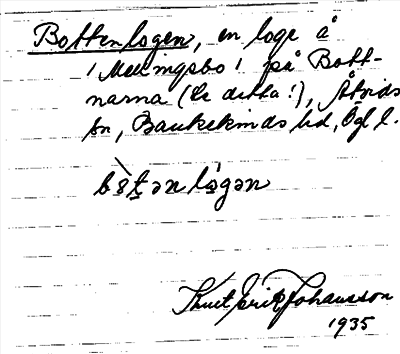 Bottenlogen, en loge å
1 Mellingsbo 1 på Bott-
narna (Se detta!), Åtvids
sn, Bankekinds hd, Ögl l.
Knut Erik Johansson
1935